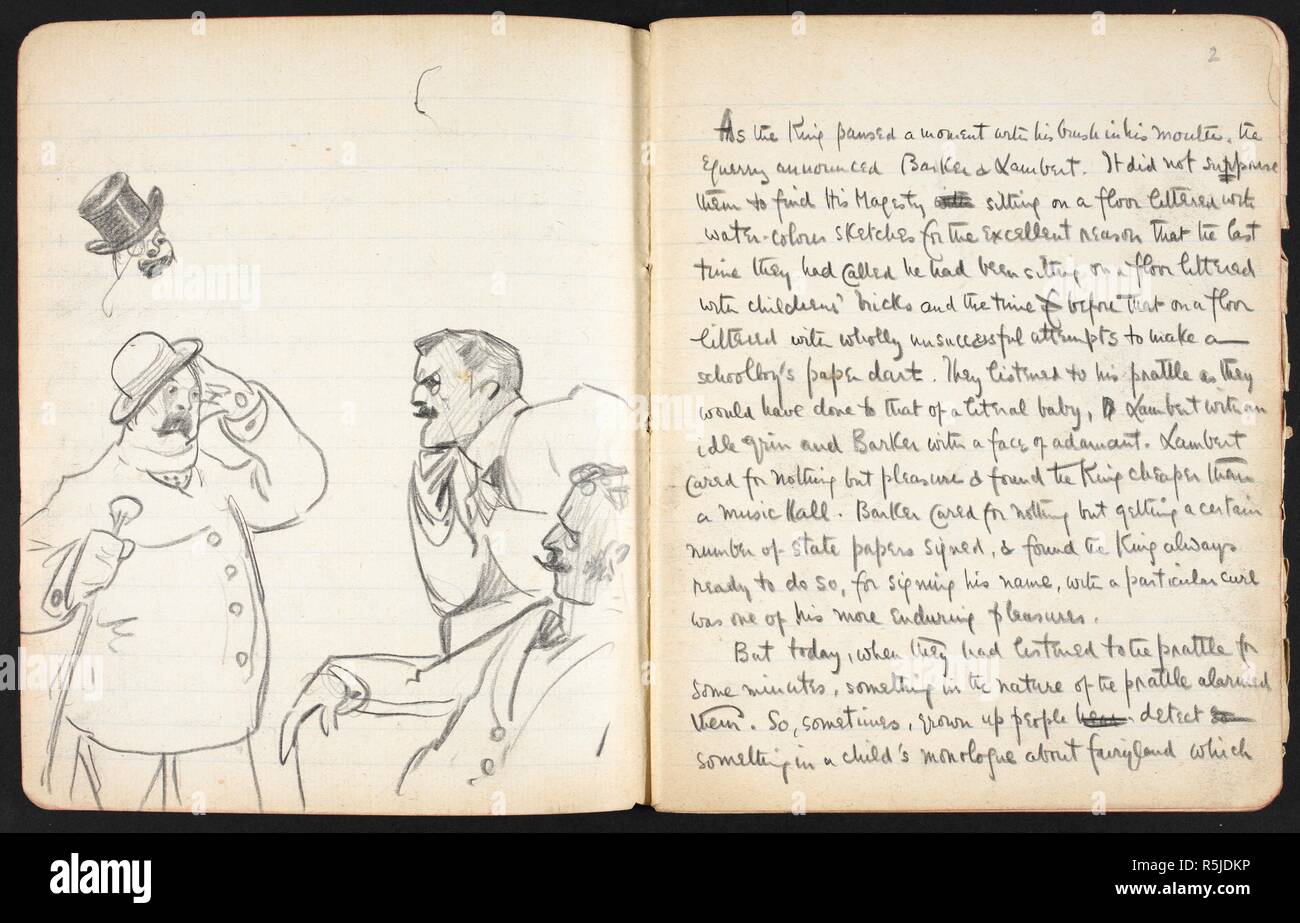 2
As the King paused a moment with his brush in his mouth, the
Equerry announced Barker & Lambert. It did not suppprise
them to find His Magesty sitting on a floor littered with
water-colour sketches for the excellent reason that the last
time they had called he had been sitting on a floor littered
with childrens' bricks and the time before that on a floor
littered with wholly unsuccessful attempts to make a
schoolboy's paper dart. They listened to his prattle as they
would have done to that of a literal baby, Lambert with an
idle grin and Barker with a face of adamant. Lambert
cared for nothing but pleasure & found the King cheaper than
a music Hall. Barker cared for nothing but getting a certain
number of state papers signed, & found the King always
ready to do so, for signing his name, with a particular curl
was one of his more enduring pleasures.
But today, when they had listened to the prattle for
some minutes, something in the nature of the prattle alarmed
them. So, sometimes, grown up people detect
something in a child's monologue about fairyland which
alamy
alamy stock photo
Image ID: R5JDKP
www.alamy.com